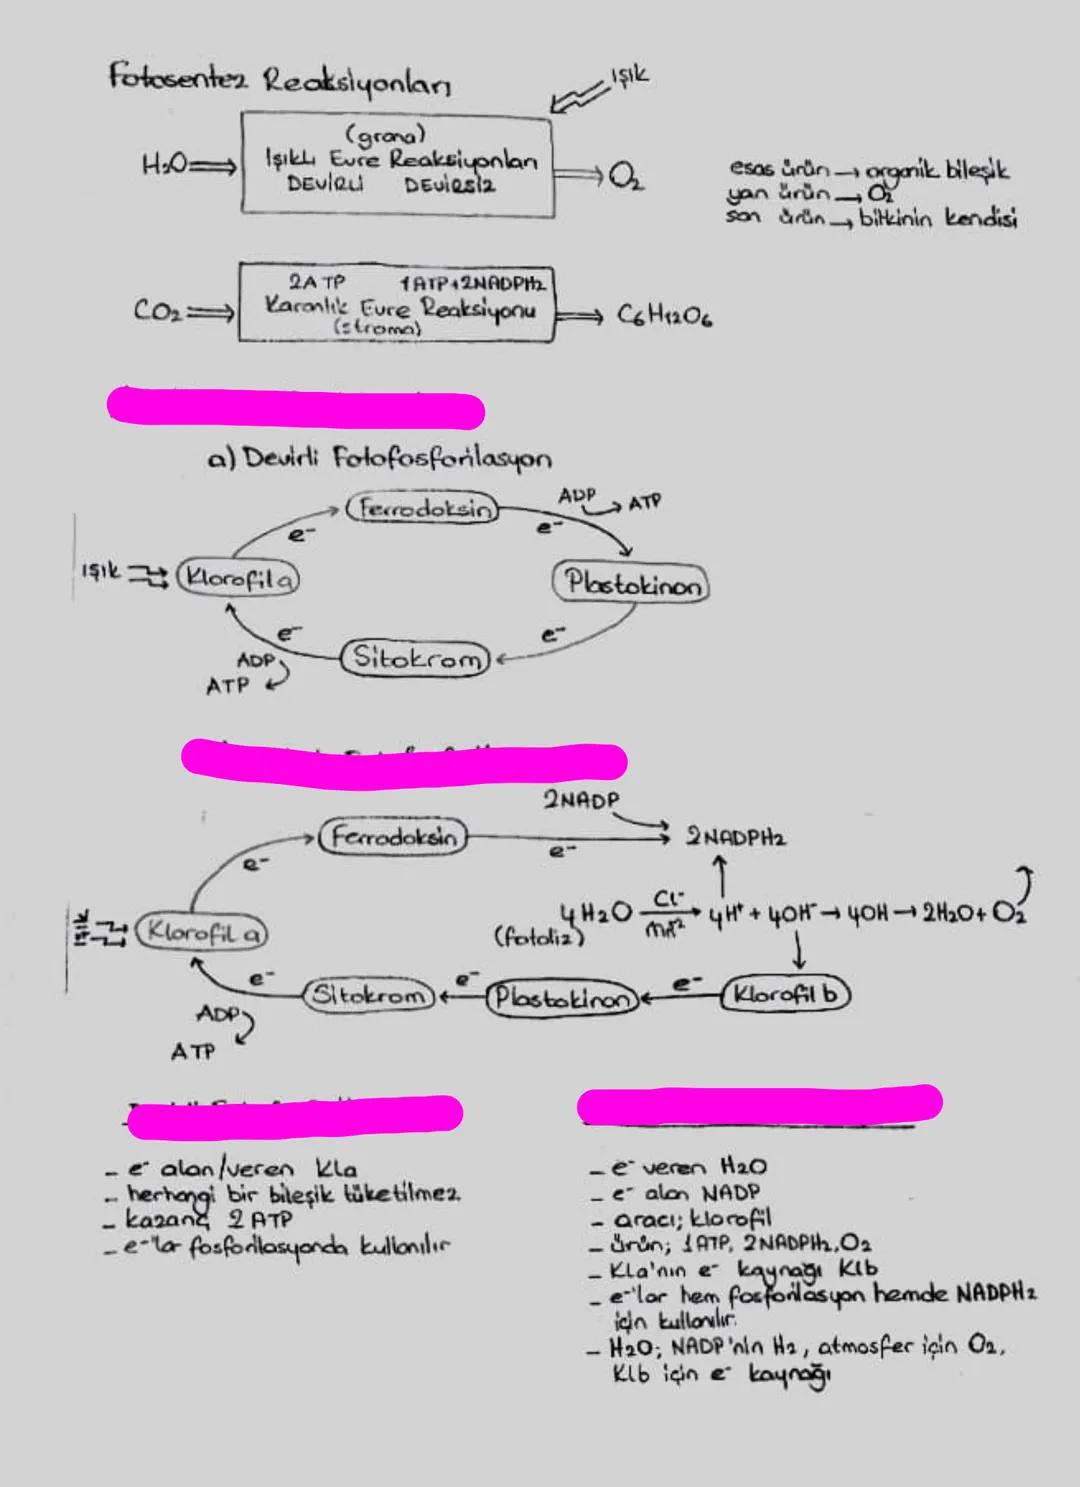 Fotosentez Reaksiyonları
ışık
(grana)
H2O ⇒ Işıklı Evre Reaksiyonları ⇒ O2
DEVİRLİ DEVİRSİZ
esas ürün → organik bileşik
yan ürün → O2
son ürün → bitkinin kendisi
2ATP 1ATP+2NADPH2
CO2 ⇒ Karanlık Evre Reaksiyonu ⇒ C6H12O6
(stroma)
a) Devirli Fotofosforilasyon
Ferrodoksin
ADP → ATP
e-
e-
ışık
Klorofil a
Plastokinon
e-
e-
Sitokrom
ADP
ATP
2NADP
Ferrodoksin
2NADPH2
e-
e-
ışık
Klorofil a
4H2O Cl- Mn+2 → 4H+ + 4OH- → 4OH → 2H2O + O2
(fotoliz)
Sitokrom ← e- Plastokinon ← e- Klorofil b
e-
ADP
ATP
- e- alan/veren Kla
- herhangi bir bileşik tüketilmez
- kazanç 2 ATP
- e-'lar fosforilasyonda kullanılır
- e- veren H2O
- e- alan NADP
- aracı; klorofil
- ürün; 1ATP, 2NADPH2, O2
- Kla'nın e- kaynağı Klb
- e-'lar hem fosforilasyon hemde NADPH2
için kullanılır.
- H2O; NADP'nin H2, atmosfer için O2,
Klb için e- kaynağı